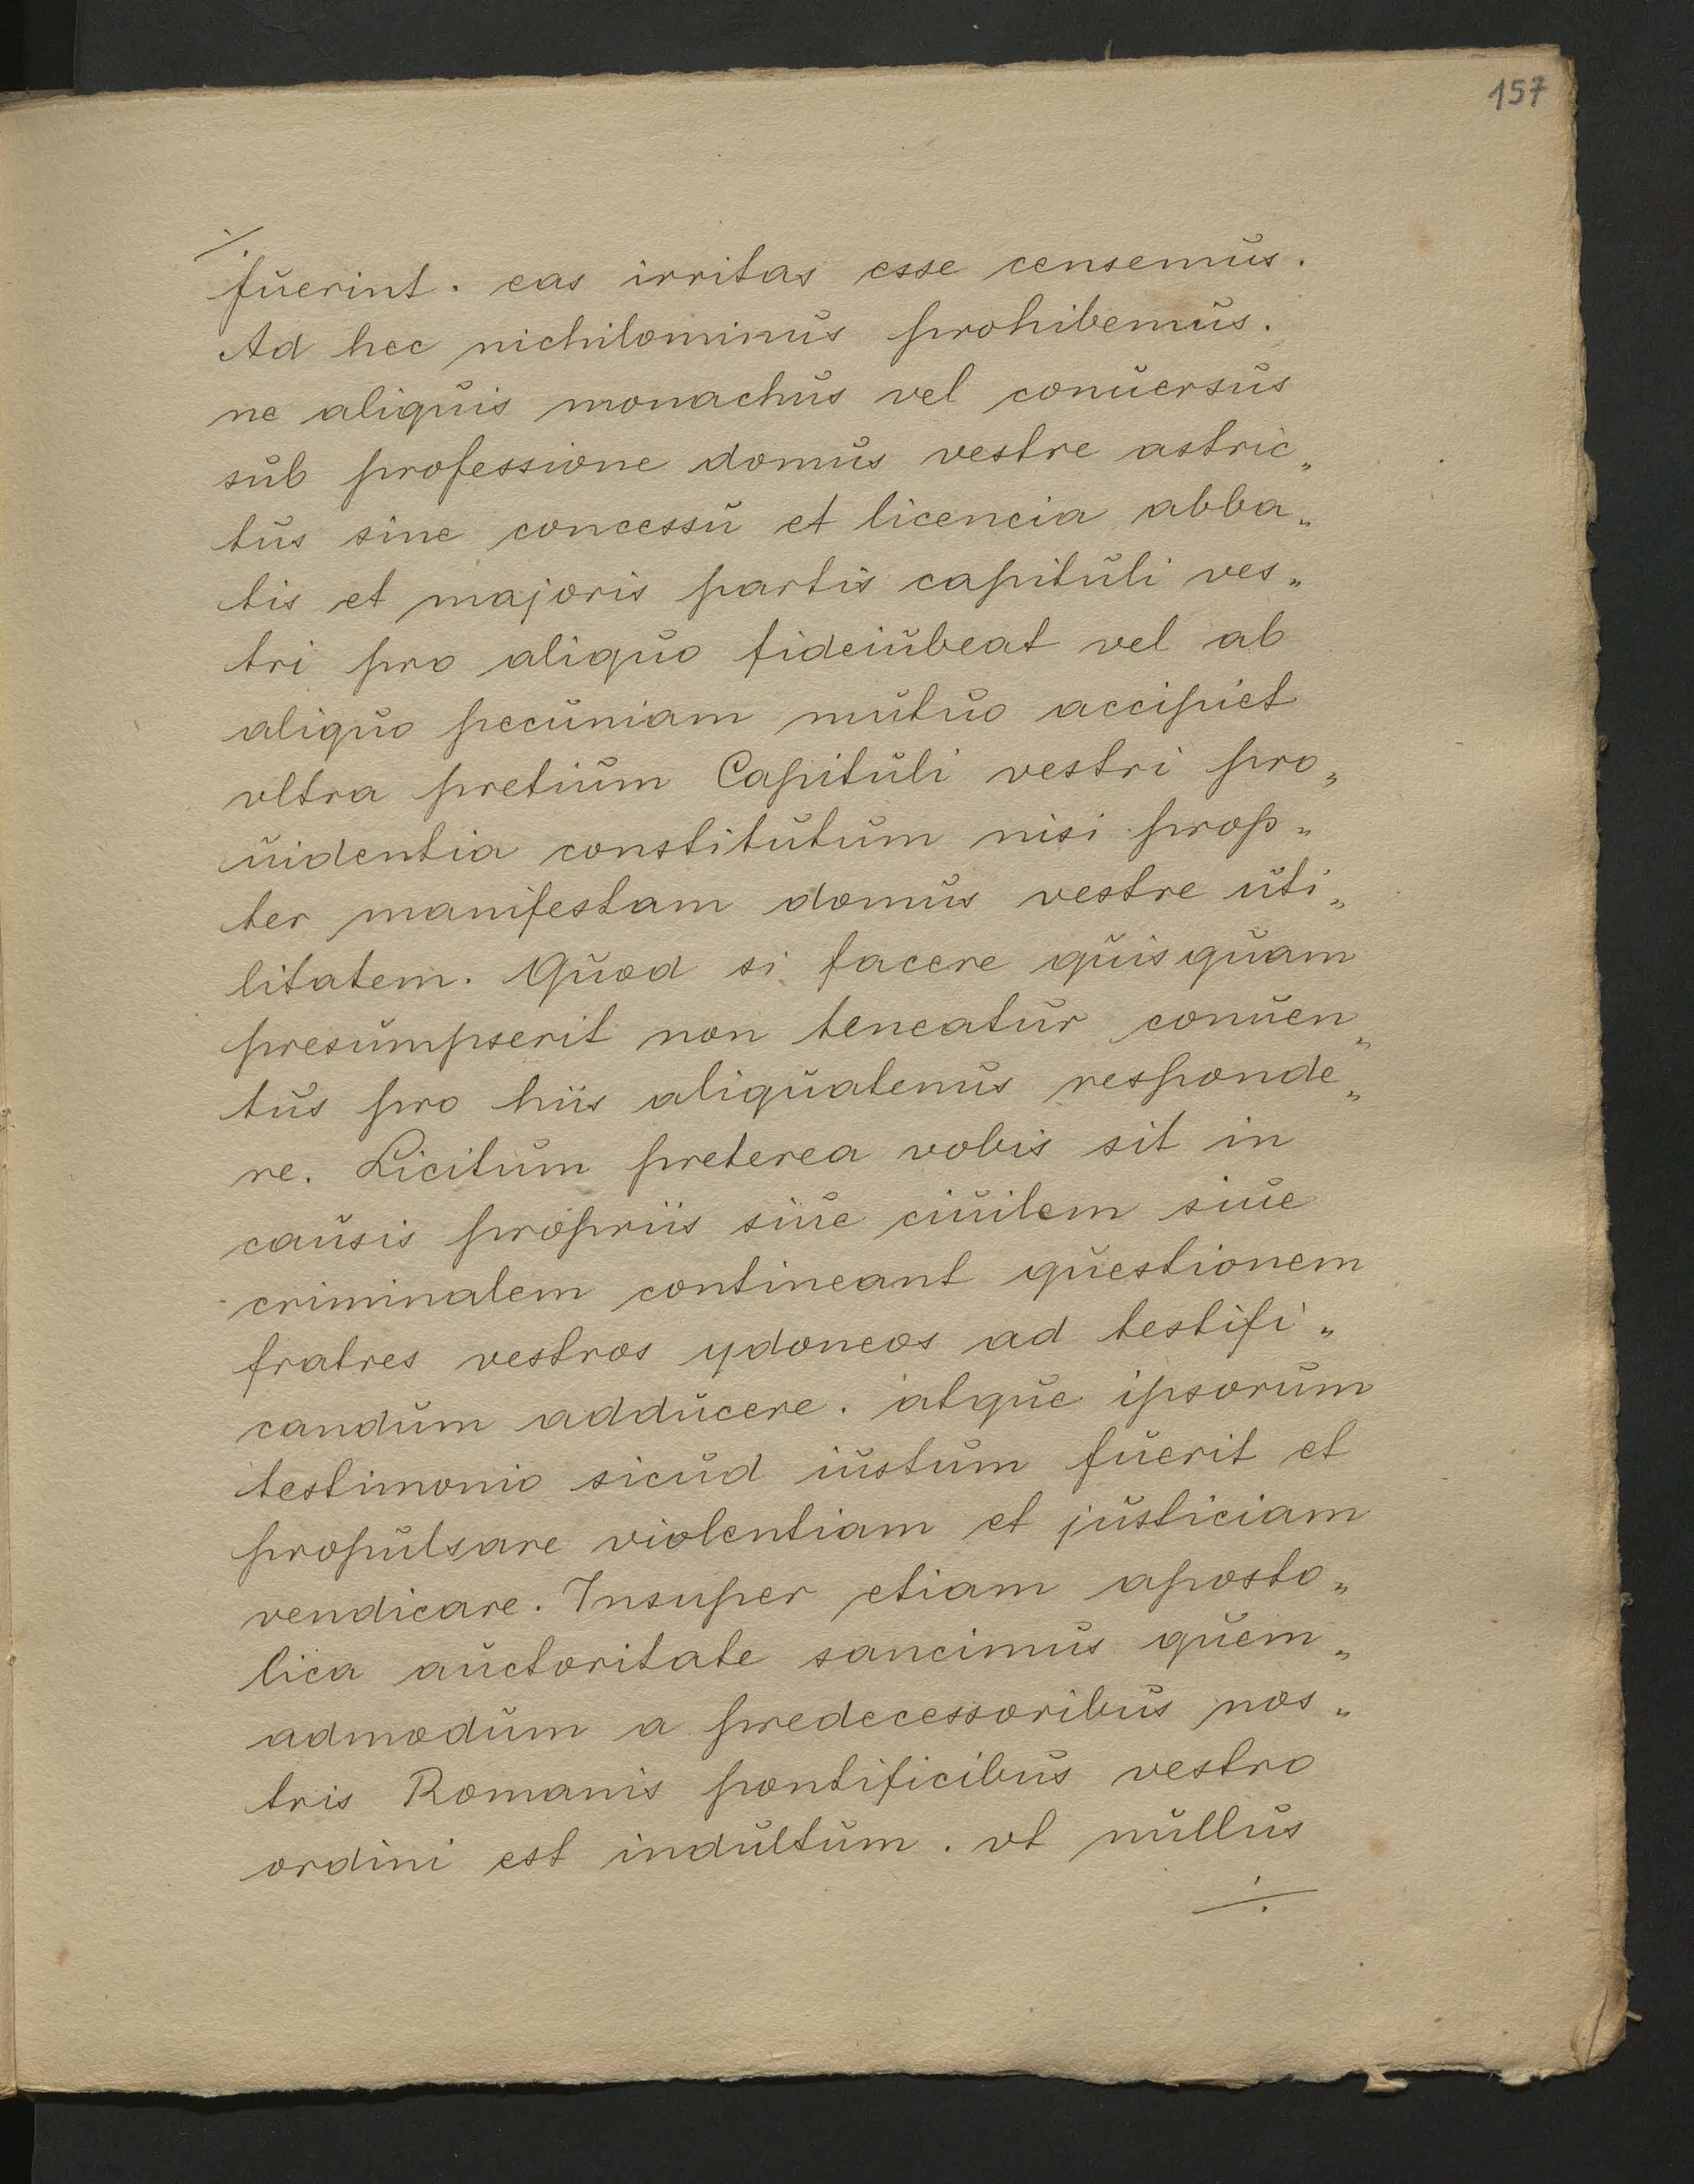 157
./.
fuerint. eas irritas esse censemus.
Ad hec nichilominus prohibemus.
ne aliquis monachus vel conuersus
sub professione domus vestre astric„
tus sine concessu et licencia abba„
tis et majoris partis capituli ves„
tri pro aliquo fideiubeat vel ab
aliquo pecuniam mutuo accipiet
vltra pretium Capituli vestri pro„
uidentia constitutum nisi prop„
ter manifestam domus vestre uti„
litatem. Quod si facere quisquam
presumpserit non teneatur conuen„
tus pro hiis aliquatenus responde„
re. Licitum preterea vobis sit in
causis propriis siue ciuilem siue
criminalem contineant questionem
fratres vestros ydoneos ad testifi„
candum adducere. atque ipsorum
testimonio sicud iustum fuerit et
propulsare violentiam et justiciam
vendicare. Insuper etiam aposto„
lica auctoritate sancimus quem„
admodum a predecessoribus nos„
tris Romanis pontificibus vestro
ordini est indultum. vt nullus
./.